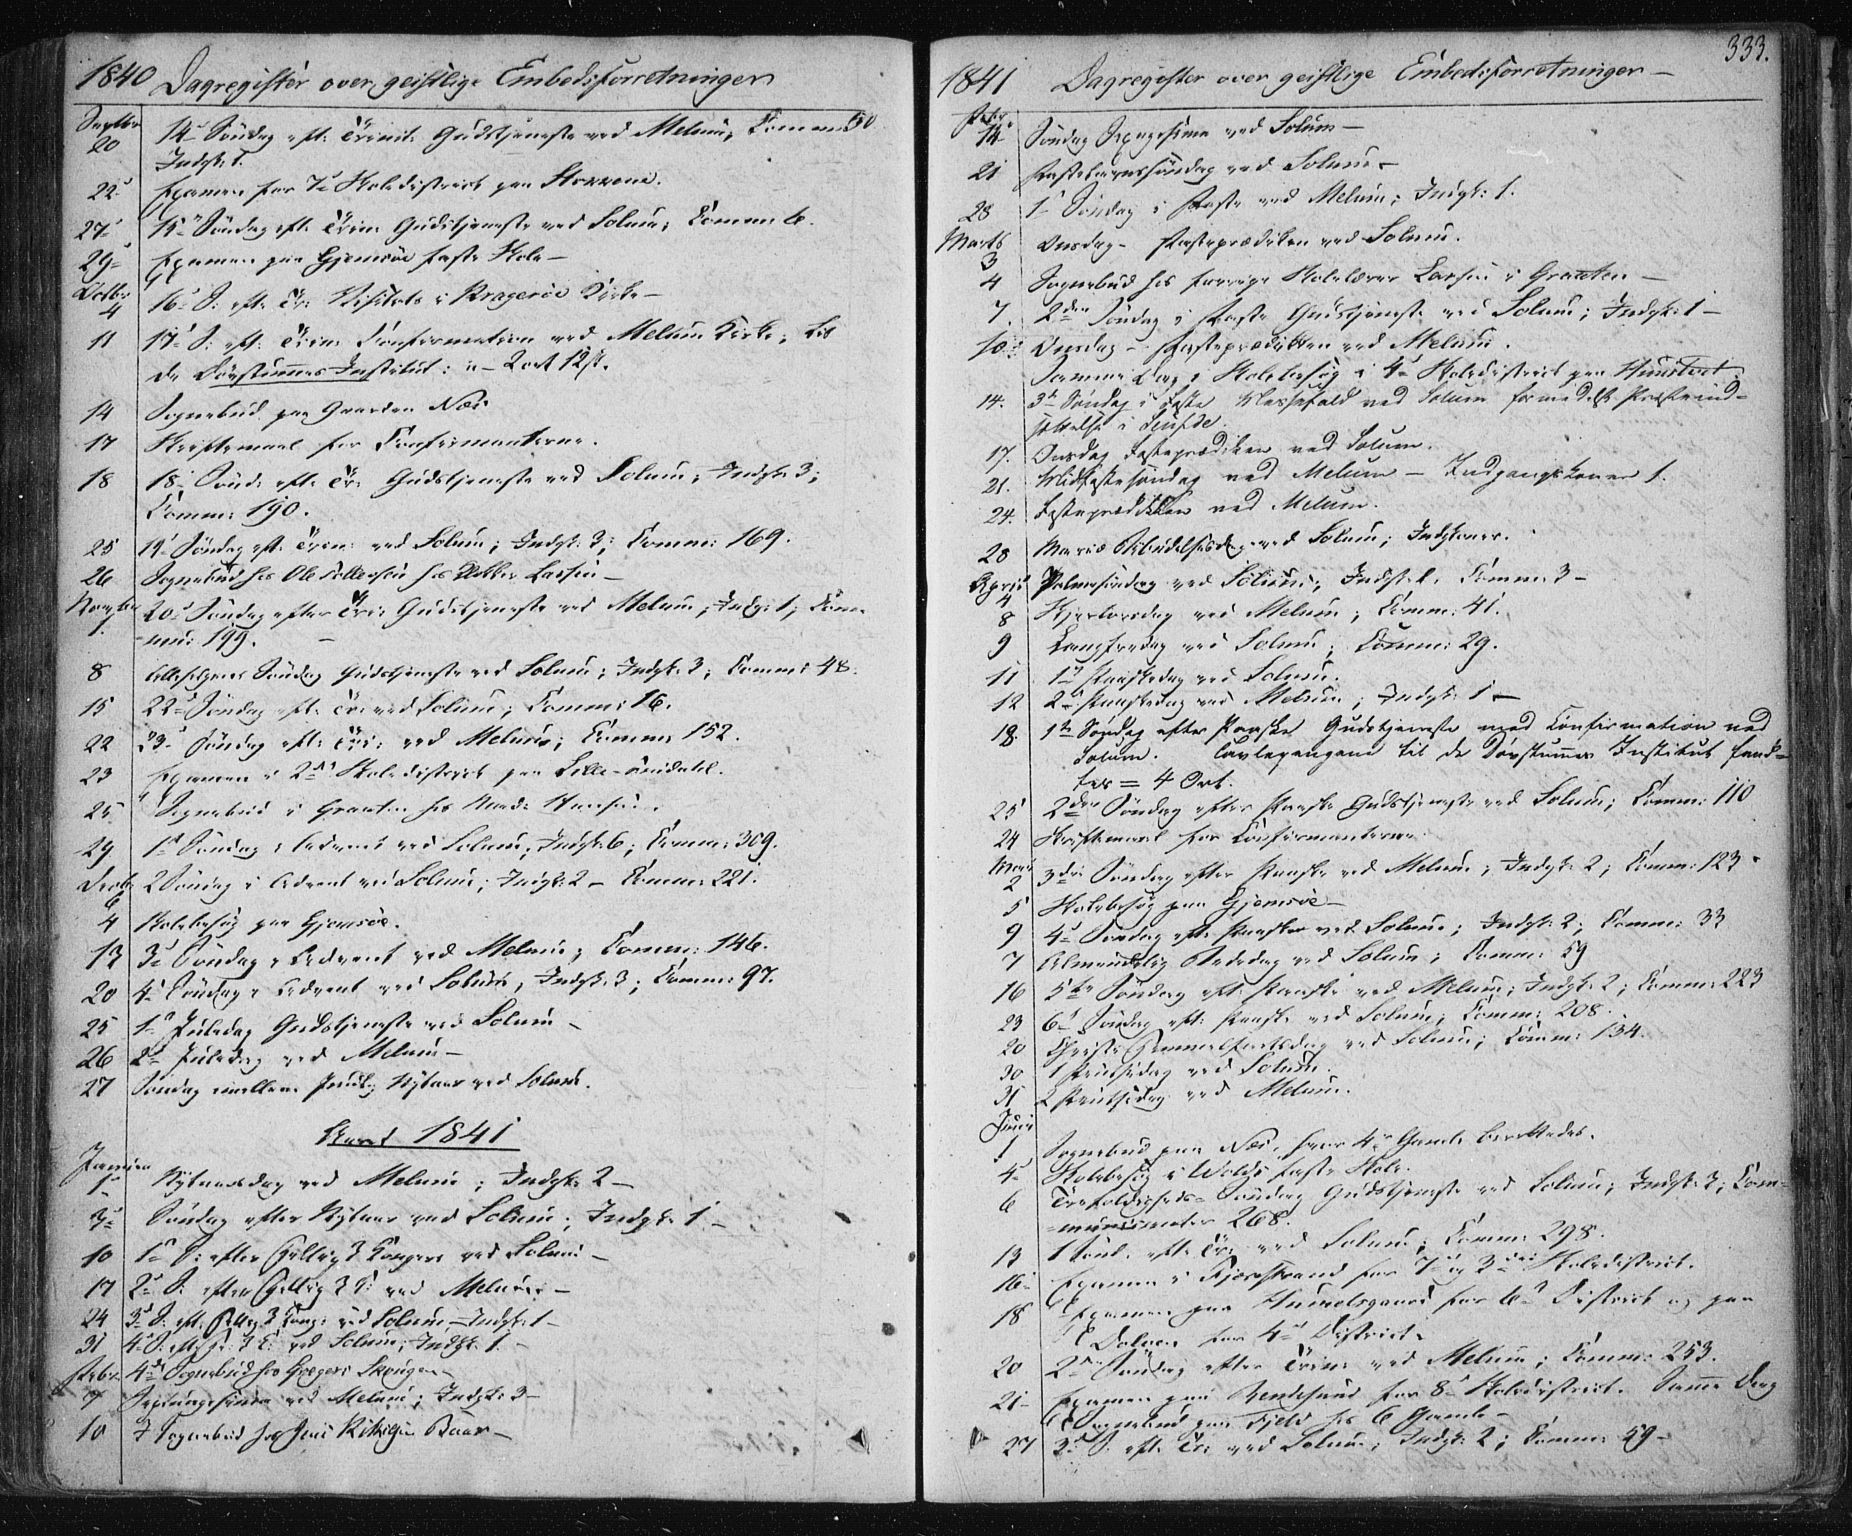 1840 Dagregister over geistlige Embedsforretninger
Septbr
20 14d Søndag eft. Trinit. Gudstjeneste ved Melum; Commu: 50
Indgk: 1.
22d Examen for 7d Skoledistrict paa
27d 15d Søndag eft. Trin: Gudstjeneste ved Solum; Commu: 6.
29d Examen paa Gjemsøe faste Skole –
Octbr
4 16d S: eft. Tr: Visitats i Kragerøe Kirke –
11 17d S: eft. Trin: Confirmation ved Melum Kirke; til
de Døvstummes Institut: 2 ort 12 sk.
14 Sognebud paa Gaarden Næs
17 Skriftemaal for Confirmanterne.
18 18d Sønd: eft. Tr: Gudstjeneste ved Solum; Indgk: 3;
Comm: 190.
25 19d Søndag eft. Trin: ved Solum; Indgk: 3; Comm: 169.
26 Sognebud hos Ole hos Larsen –
Novbr
1. 20d Søndag efter Tr: Gudstjeneste ved Melum; Indg: 1; Com-
mu: 199. –
8 Allehelgens Søndag Gudstjeneste ved Solum; Indgk: 3; Comm: 48.
15 22d Søndag eft. Tr: ved Solum; Comm: 16.
22 23d Søndag eft. Tri: ved Melum; Comm: 152.
23 Examen i 2det Skoledistrict paa Lille-
25 Sognebud i Graaten hos Mads Hansen.
29 1d Søndag i Advent ved Solum; Indgk: 6; Comm: 309.
Decbr
6 2 Søndag i Advent ved Solum; Indgk: 2 – Comm: 221.
4 Skolebesøg paa Gjemsøe.
13 3d Søndag i Advent ved Melum; Comm: 146.
20 4d Søndag i Advent ved Solum, Indgk: 3; Comm: 97.
25 1d Juledag Gudstjeneste ved Solum –
26 2d Juledag ved Melum –
27 Søndag mellem Juul og Nytaar ved Solum.
Aaret 1841
Januar
1d Nytaarsdag ved Melum; Indgk: 2 –
3d Søndag efter Nytaar ved Solum; Indgk: 1 –
10 1d S: efter Hellig 3 Kongers ved Solum –
17 2d S: efter Hellig 3 K: ved Melum –
24 3d S: eft. Hellig 3 Kong: ved Solum – Indgk: 1 –
31 4d S: eft. H: 3 K: ved Solum; Indgk: 1 –
Febr. 4de Sognebud hos
7 Septuagesima ved Melum; Indgk: 3 –
10 Sognebud hos Jens
1841 Dagregister over geistlige Embedsforretninger – 333.
Febr:
14 Søndag Sexagesima ved Solum –
21 Fastelavnssøndag ved Solum –
28 1d Søndag i Faste ved Melum; Indgk: 1.
Marts
3 Onsdag – Fasteprædiken ved Solum.
4 Sognebud hos forrige Skolelærer Larsen i Graaten –
7. 2den Søndag i Faste Gudstjeneste ved Solum; Indgk: 1 –
10. Onsdag – Fasteprædiken ved Melum.
Samme Dag i Skolebesøg i 4d Skoledistrict paa
14. 3d Søndag i Faste Messefald ved Solum formedelst Præsteind-
sættelse i
17. Onsdag Fasteprædiken ved Solum.
21. Midfastesøndag ved Melum – Indgangskoner 1.
24. Fasteprædiken ved Melum.
28 Mariæ Bebudelsesdag ved Solum; Indgkoner.
April
4 Palmesøndag ved Solum; Indgk: 1. Comm: 3 –
8 Skjertorsdag ved Melum; Comm: 41.
9 Langfredag ved Solum; Comm: 29.
11 1d Paaskedag ved Solum.
12 2d Paaskedag ved Melum; Indgk: 1 –
18. 1ste Søndag efter Paaske Gudstjeneste med Confirmation ved
Solum. Tavlepengene til de Døvstummes Institut
= 4 Ort.
25 2den Søndag efter Paaske Gudstjeneste ved Solum; Comm: 110
24 Skriftemaal for Confirmanterne
Mai
2 3die Søndag efter Paaske ved Melum; Indgk: 2; Comm: 123.
5 Skolebesøg paa Gjemsøe –
9 4d Søndag eft. Paaske ved Solum; Indgk: 2; Comm: 33
7 Almindelig Bededag ved Solum; Comm: 59
16 5te Søndag eft. Paaske ved Melum; Indgk: 2; Comm: 223
23 6d Søndag eft. Paaske ved Solum; Comm: 208.
20 Christi Himmelfartsdag ved Solum; Comm: 134.
30 1 Pintsedag ved Solum.
31 2 Pintsedag ved Melum.
Juni
1 Sognebud paa Næs, hvor 4re Gamle berettedes.
4d Skolebesøg i Wolds faste Skole.
6 Trefoldigheds-Søndag Gudstjeneste ved Solum; Indgk: 3; Com-
municanter 268.
13 1 Sønd. eft. Tr: ved Solum; Comm: 298.
16d Examen i Fjærestrand for 7d og 3die Skoledistrict.
18 Examen paa for 6d District og paa
for 4d District.
20 2den Søndag efter Trin: ved Melum; Comm: 253.
21 – Examen paa for 8d Skoledistrict. Samme Dag
Sognebud paa Fjeld hos 6 Gamle –
27 3d S: eft. Tr: ved Solum; Indgk: 2; Comm: 59 –